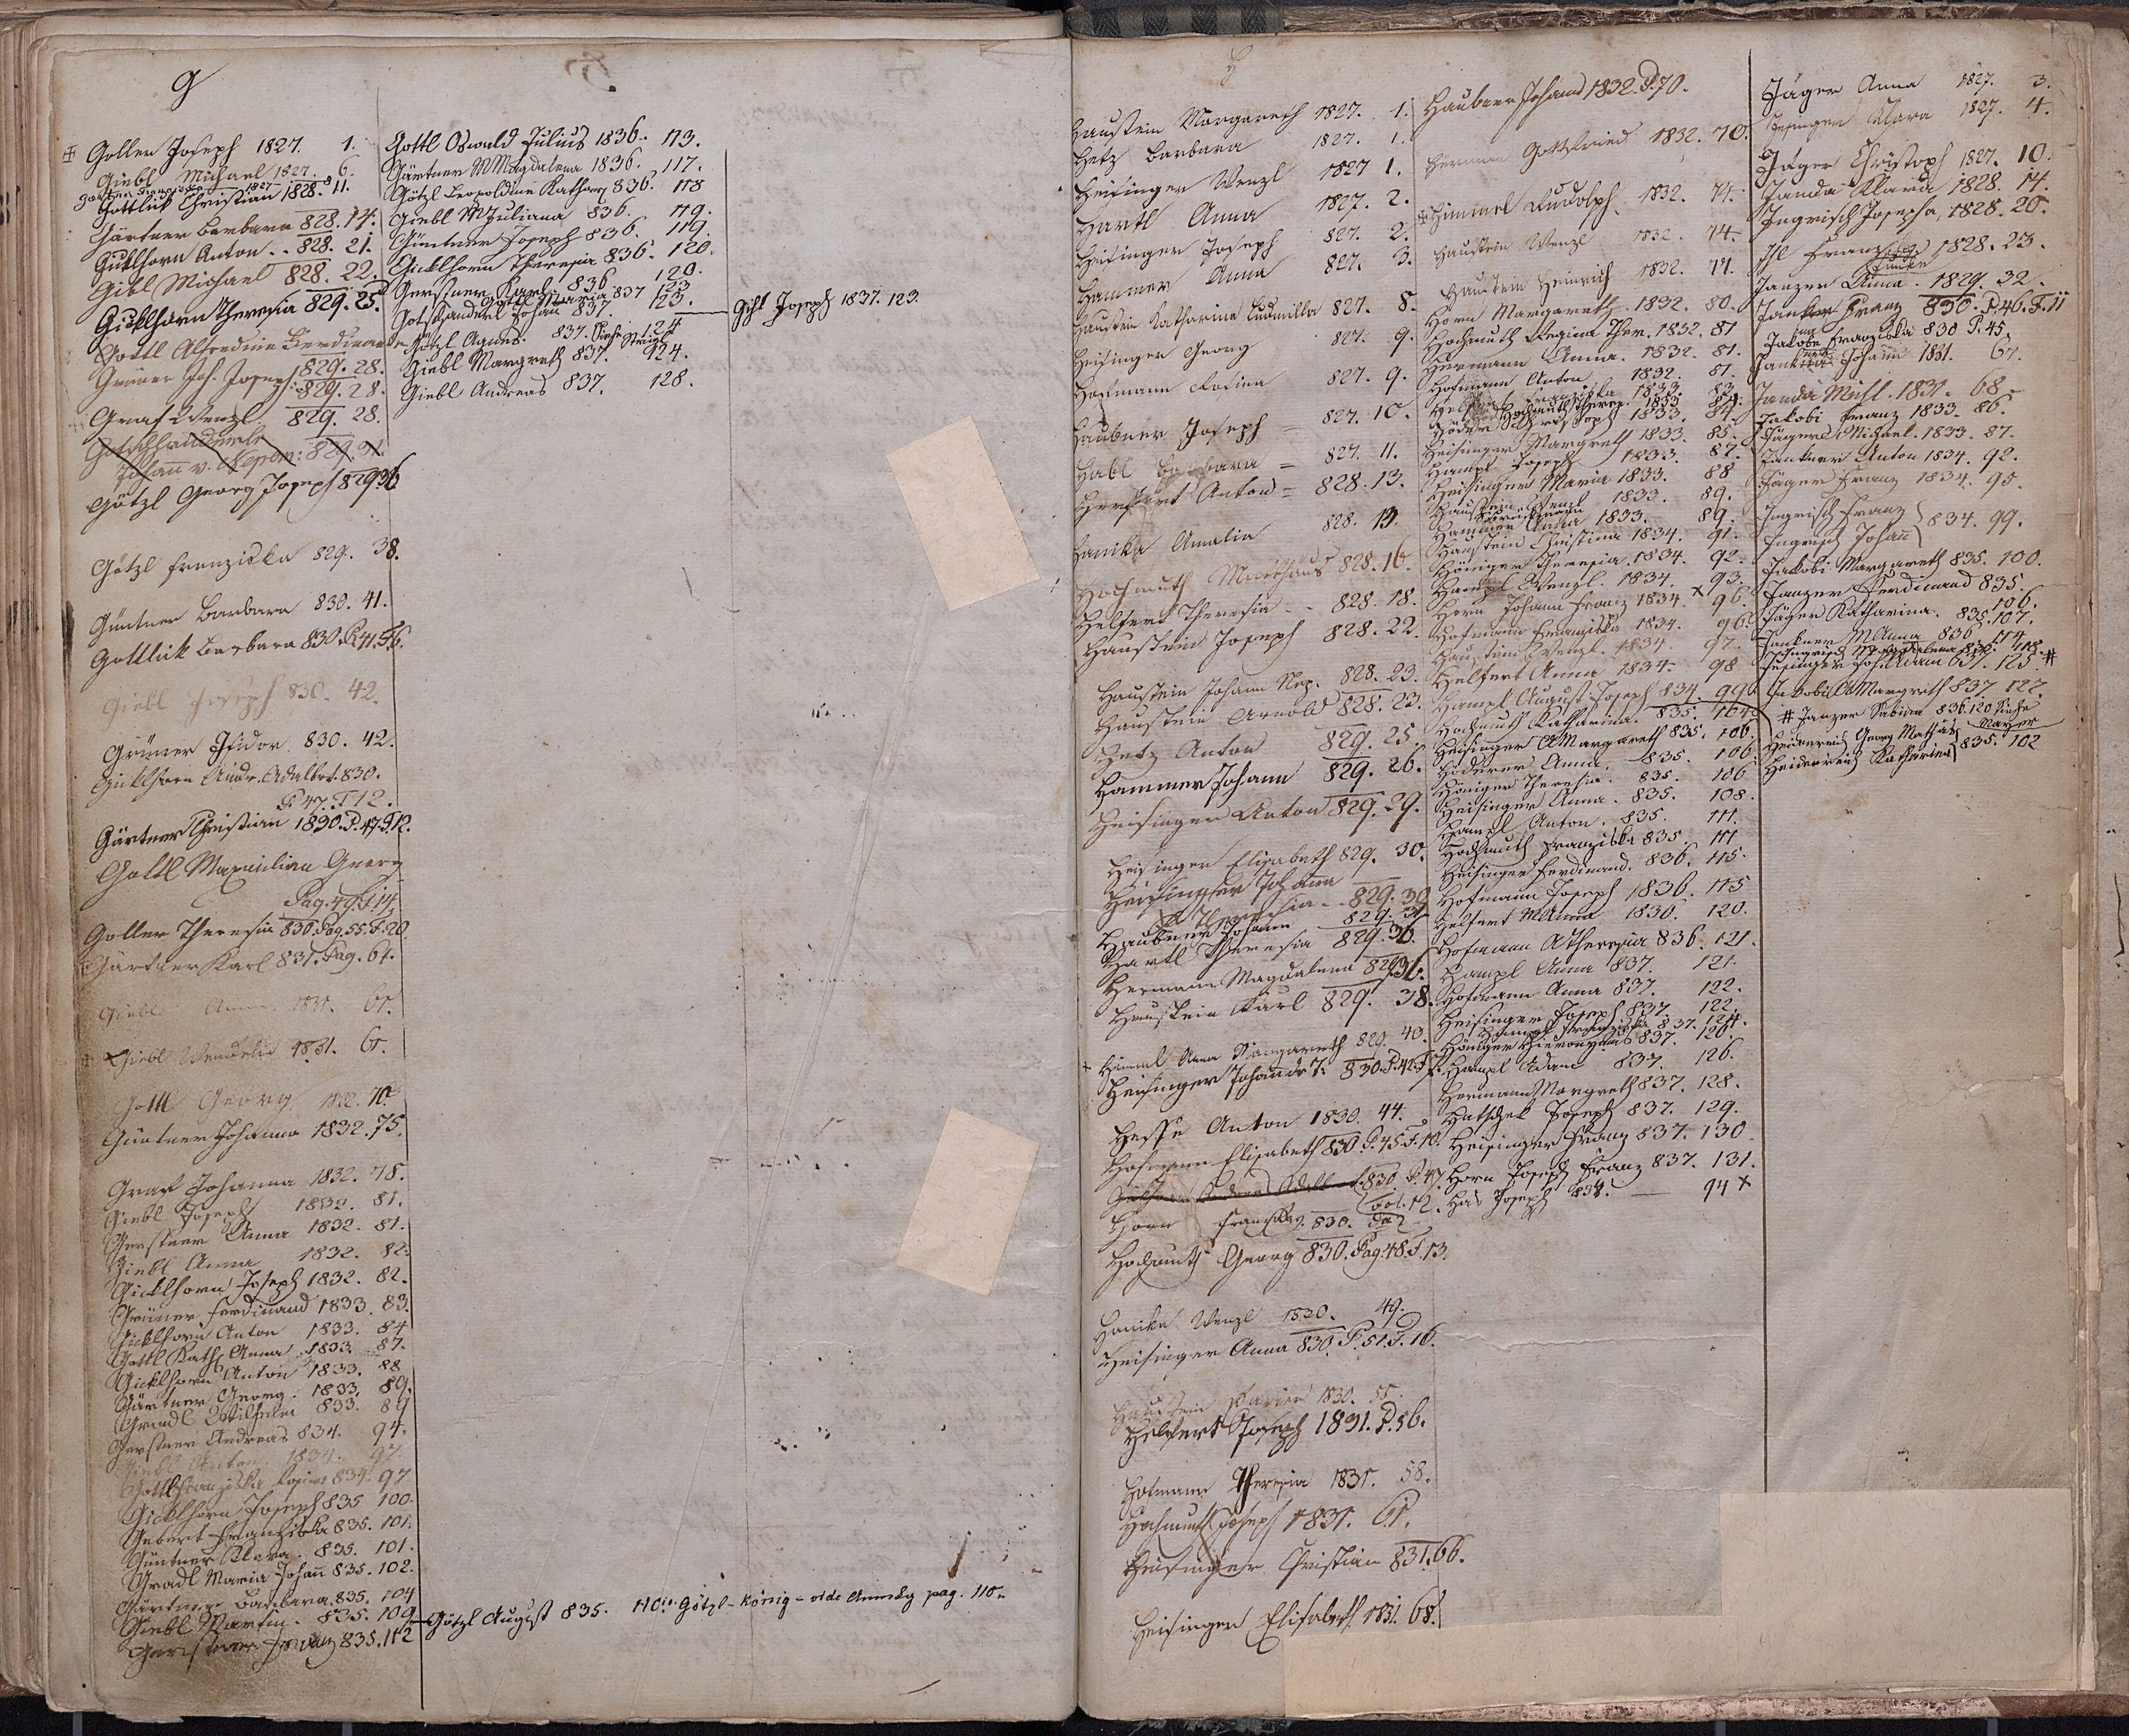 G
Goller Joseph 1827. 1.
Giebl Michael 1827. 6.
Gottlick Christian 1828. 11.
Gärtner Barbara 828. 14.
Guklhorn Anton .. 828. 21.
Gibl Michael 828. 22.
Guklhorn Theresia 829. 25.
Gottl Alfredine Ferdinande
829. 28.
Grüner Joh. Joseph 829. 28.
Graf Wenzl 829. 28.
Johañ v. Nepom: 829. 31.
Götzl Georg Joseph 829 36
Götzl Franziska 829. 38.
Güntner Barbara 830. 41.
Gottlick Barbara 830. P. 41. F. 6.
Giebl Joseph 830. 42.
Grüner Isidor 830. 42.
Guklhorn Andr. Adalbert. 830.
P. 47. F 12.
Gärtner Christian 1830. P. 47. F. 12.
Gottl Maximilian Georg
Pag. 49. F. 14.
Goller Theresia 830. Pag. 55. F. 20.
Gärtner Karl 831. Pag. 61.
Giebl Anna 1831. 61.
Giebl Wendelin 1831. 61.
Gottl Georg 1832. 70.
Güntner Johanna 1832. 75.
Graf Johanna 1832. 78.
Giebl Joseph 1832. 81.
Gerstner Anna 1832. 81.
Giebl Anna 1832. 82.
Gicklhorn Joseph 1832. 82.
Grüner Ferdinand 1833. 83.
Gicklhorn Anton 1833. 84
Gottl Kath. Anna 1833. 87.
Gicklhorn Anton 1833. 88
Gärtner Georg. 1833. 89.
Gradl Wilhelm 833. 89
Gerstner Andreas 834. 94.
Giebl Anton. 1834. 97.
Gottl Franziska 834. 97
Gicklhorn Joseph 835 100.
Gebert Franziska 835. 101.
Güntner Klara. 835. 101.
Gradl Maria Johañ 835. 102.
Gärtner Barbara. 835. 104
Giebl Martin. 835. 109
Gerstner Franz 835. 112
Gottl Oswald Julius 1836. 113.
Gärtner M Magdalena 1836. 117.
Götzl Leopoldine Kathar 836. 118
Giebl M Juliana 836. 119.
Güntner Joseph 836. 119.
Gicklhorn Theresia 836. 120.
Gerstner Karl. 836 120.
Gottl Maria 837 123
Gotschanderl Johan 837. 123.
Götzl Agnes. 837. 124
Giebl Margreth 837. 124.
Giebl Andreas 837. 128.
Gibl Joseph 1837. 123.
Götzl August 835. 110. Götzl-König = vide pag. 110.
H
Haustein Margareth 1827. 1.
Hetz Barbara 1827. 1.
Heisinger Wenzl 1827 1.
Hartl Anna 1827. 2.
Heisinger Joseph 827. 2.
Hammer Anna 827. 3.
Haustein Katharina Ludmilla 827. 8.
Heisinger Georg 827. 9.
Hofmann Rosina 827. 9.
Haubner Joseph = 827. 10.
Habl Barbara = 827. 11.
Herfurt Anton = 828. 13.
Hanika Amalia 828. 13.
Hochmuth Matthäus 828. 16.
Helfert Theresia .. 828. 18.
Haustein Joseph 828. 22.
Haustein Johann Nep. 828. 23.
Haustein Arnold 828. 23.
Hetz Anton 829. 25.
Hammer Johann 829. 26.
Heisinger Anton 829. 29.
Heisinger Elisabeth 829. 30.
Heisinger Johanna
Theresia .. 829. 30
Haubner Johann 829. 31
Hartl Theresia 829. 36.
Hermann Magdalena 829 36.
Haustein Karl 829. 38.
Himml Anna Margareth 829. 40.
Heisinger Johann v. N. 830. P. 42. F. 7.
Hesse Anton 1830. 44.
Hofmann Elisabeth 830. P. 45. F. 10.
Horn Franziska 830.
Hochmuth Georg 830. Pag. 48. F. 13.
Hanika Wenzl 1830. 49.
Heisinger Anna 830. P. 51. F. 16.
Haustein 1830. 55.
Helfert Joseph 1831. P. 56.
Hofmann Theresia 1831. 58.
Hochmuth Joseph 1831. 61.
Heisinger Christian 831. 66.
Heisinger Elisabeth 1831. 68.
Haubner Johann 1832. P. 70.
Herman Gottfried 1832. 70.
Himmel Rudolph. 1832. 74.
Haustein Wenzl 1832. 74.
Haustein Heinrich 1832. 77.
Horn Margareth. 1832. 80.
Hochmuth Regina Ther. 1832. 81
Hermann Anna. 1832. 81.
Hofmann Anton 1832. 81.
Hochmuth Theres. 1833 84.
Höderer Christoph 1833. 84
Heisinger Margreth 1833. 85.
Hampl Joseph 1833. 87.
Heisinger Maria 1833. 88
Haustein Wenzl 1833. 89.
Hammer Anna 1833. 89.
Haustein Christina 1834. 91.
Höniger Theresia. 1834. 92.
Hampl Wenzl. 1834. 93.
Horn Johann Franz 1834. 96.
Hofmann Franziska 1834. 96.
Haustein Wenzl. 1834. 97.
Helfert Anna 1834. 98
Hampl August Joseph 834. 99.
Hochmuth Katharina. 835. 104
Heisinger A Margareth 835. 106.
Höderer Anna. 835. 106.
Höniger Theresia. 835. 106
Heisinger Anna. 835. 108.
Hampl Anton. 835. 111.
Hochmuth Franziska 835. 111
Heisinger Ferdinand. 836. 115.
Hofmann Joseph 1836. 115
Helfert M Anna 1836. 120.
Hofmann A Theresia 836. 121.
Hampl Anna 837. 121.
Hofmann Anna 837. 122.
Heisinger Joseph 837. 122.
Hampl Franziska 837. 124.
Höniger Hieronymus 837. 126.
Hampl Adam 837. 126.
Hermann Margreth 837. 128.
Hatschek Joseph 837. 129.
Heisinger Franz 837. 130
Horn Joseph Franz 837. 131.
Has Joseph 834. — 94 x
Jäger Anna 1827. 3.
Klara 1827. 4.
Jäger Christoph 1827. 10.
Janda Klara 1828. 14.
Ingrisch Josepha, 1828. 20.
Franz 1828. 23.
Janzer Anna. 1829. 32.
Franz 830. P. 46. F. 11
Jakobe Franziska 830 P. 45.
Johann 1831. 67.
Janda Mich. 1831. 68.
Jakobi Franz 1833. 86.
Jäger Michael. 1833. 87.
Janker Anton 1834. 92.
Jäger Franz 1834. 95.
Ingrisch Franz
Ingrisch Johañ } 834. 99.
Jakobi Margareth 835. 100.
Janzer Ferdinand 835.
106.
Jäger Katharina. 835. 107.
M Anna 836 114
Joh. Adam 837. 125. #
Jakobi A Margreth 837. 127.
# Janzer Sabina 836. 120 Siehe
Heidenreich Georg Mathäs
Heidenreich Katharina } 835. 102